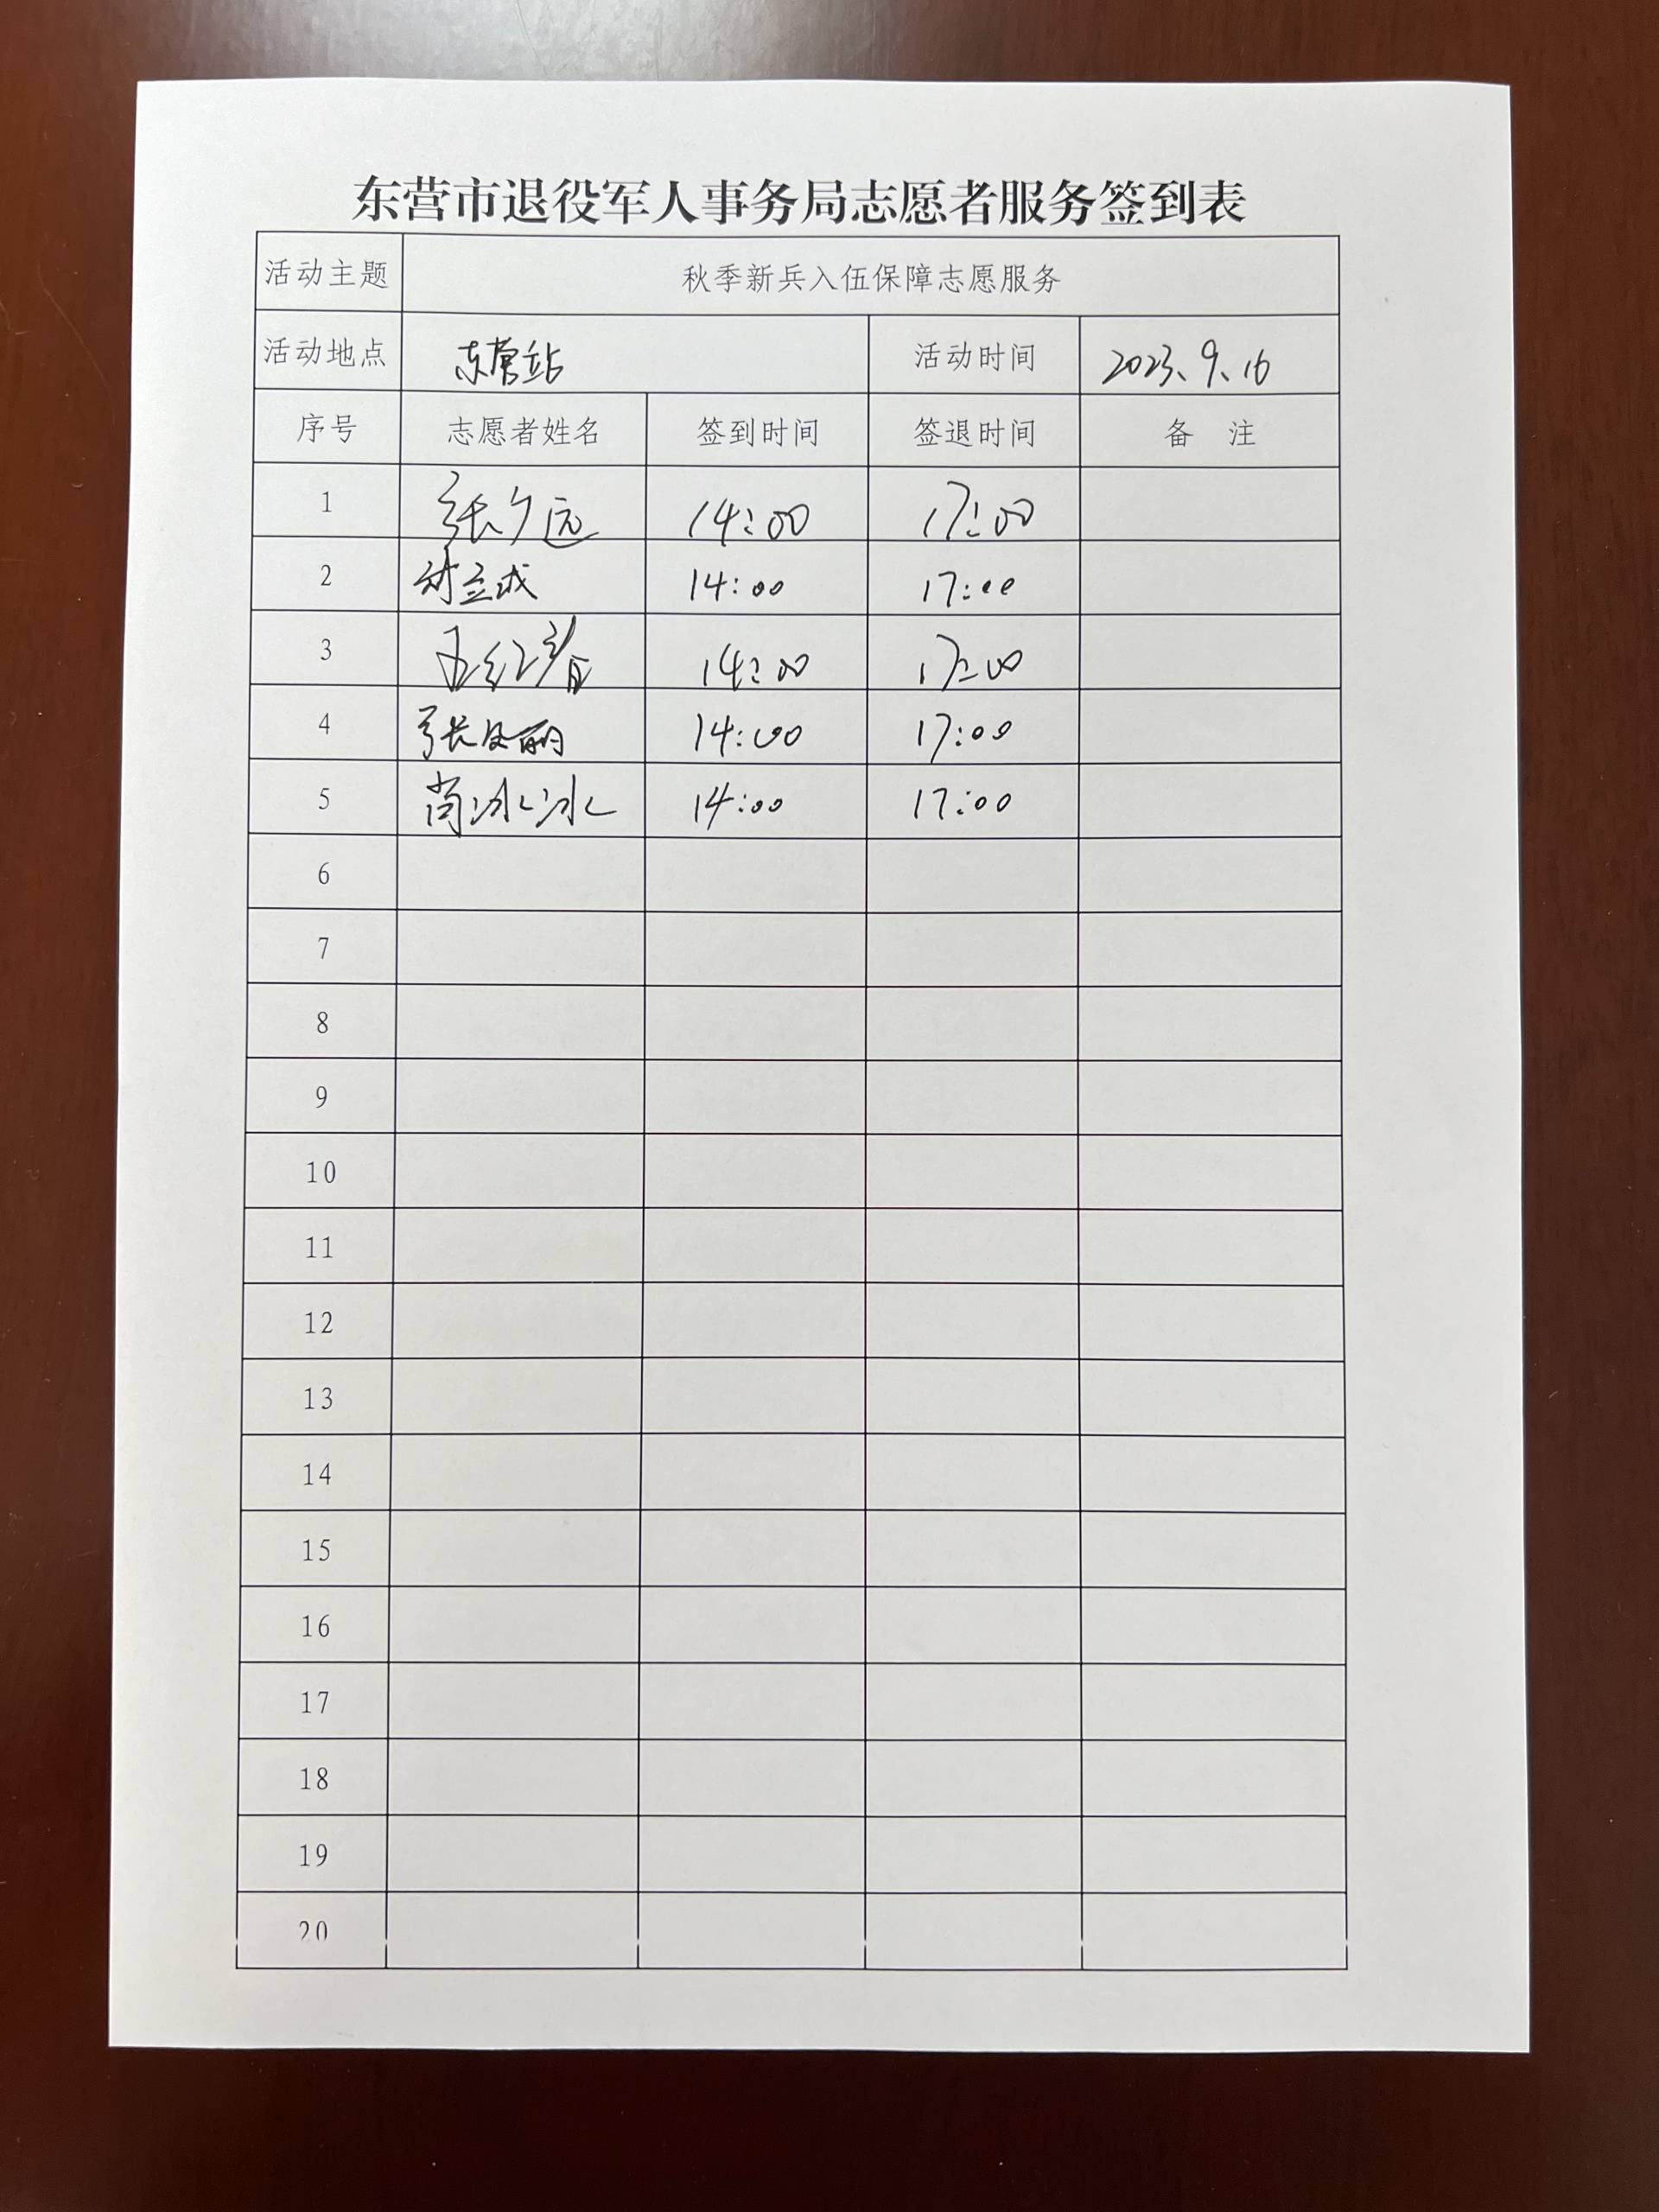 东营市退役军人事务局志愿者服务签到表
活动主题 秋季新兵入伍保障志愿服务
活动地点 东营站 活动时间 2023、9、16
序号 志愿者姓名 签到时间 签退时间 备 注
1 14:00 17:00
2 14:00 17:00
3 14:00 17:00
4 14:00 17:00
5 尚冰冰 14:00 17:00
6
7
8
9
10
11
12
13
14
15
16
17
18
19
20